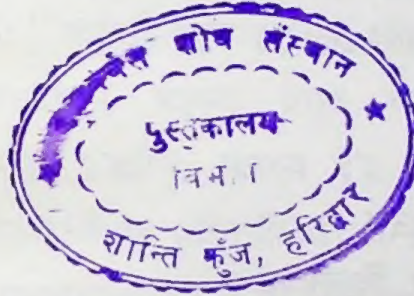 शोध संस्थान
पुस्तकालय
विभाग
शान्ति कुँज, हरिद्वार